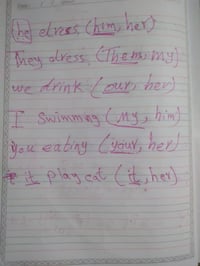 he dress (him, her)
They dress (Them, my)
we drink (our, her)
I swimming (my, him)
you eating (your, her)
it play cat (it, her)